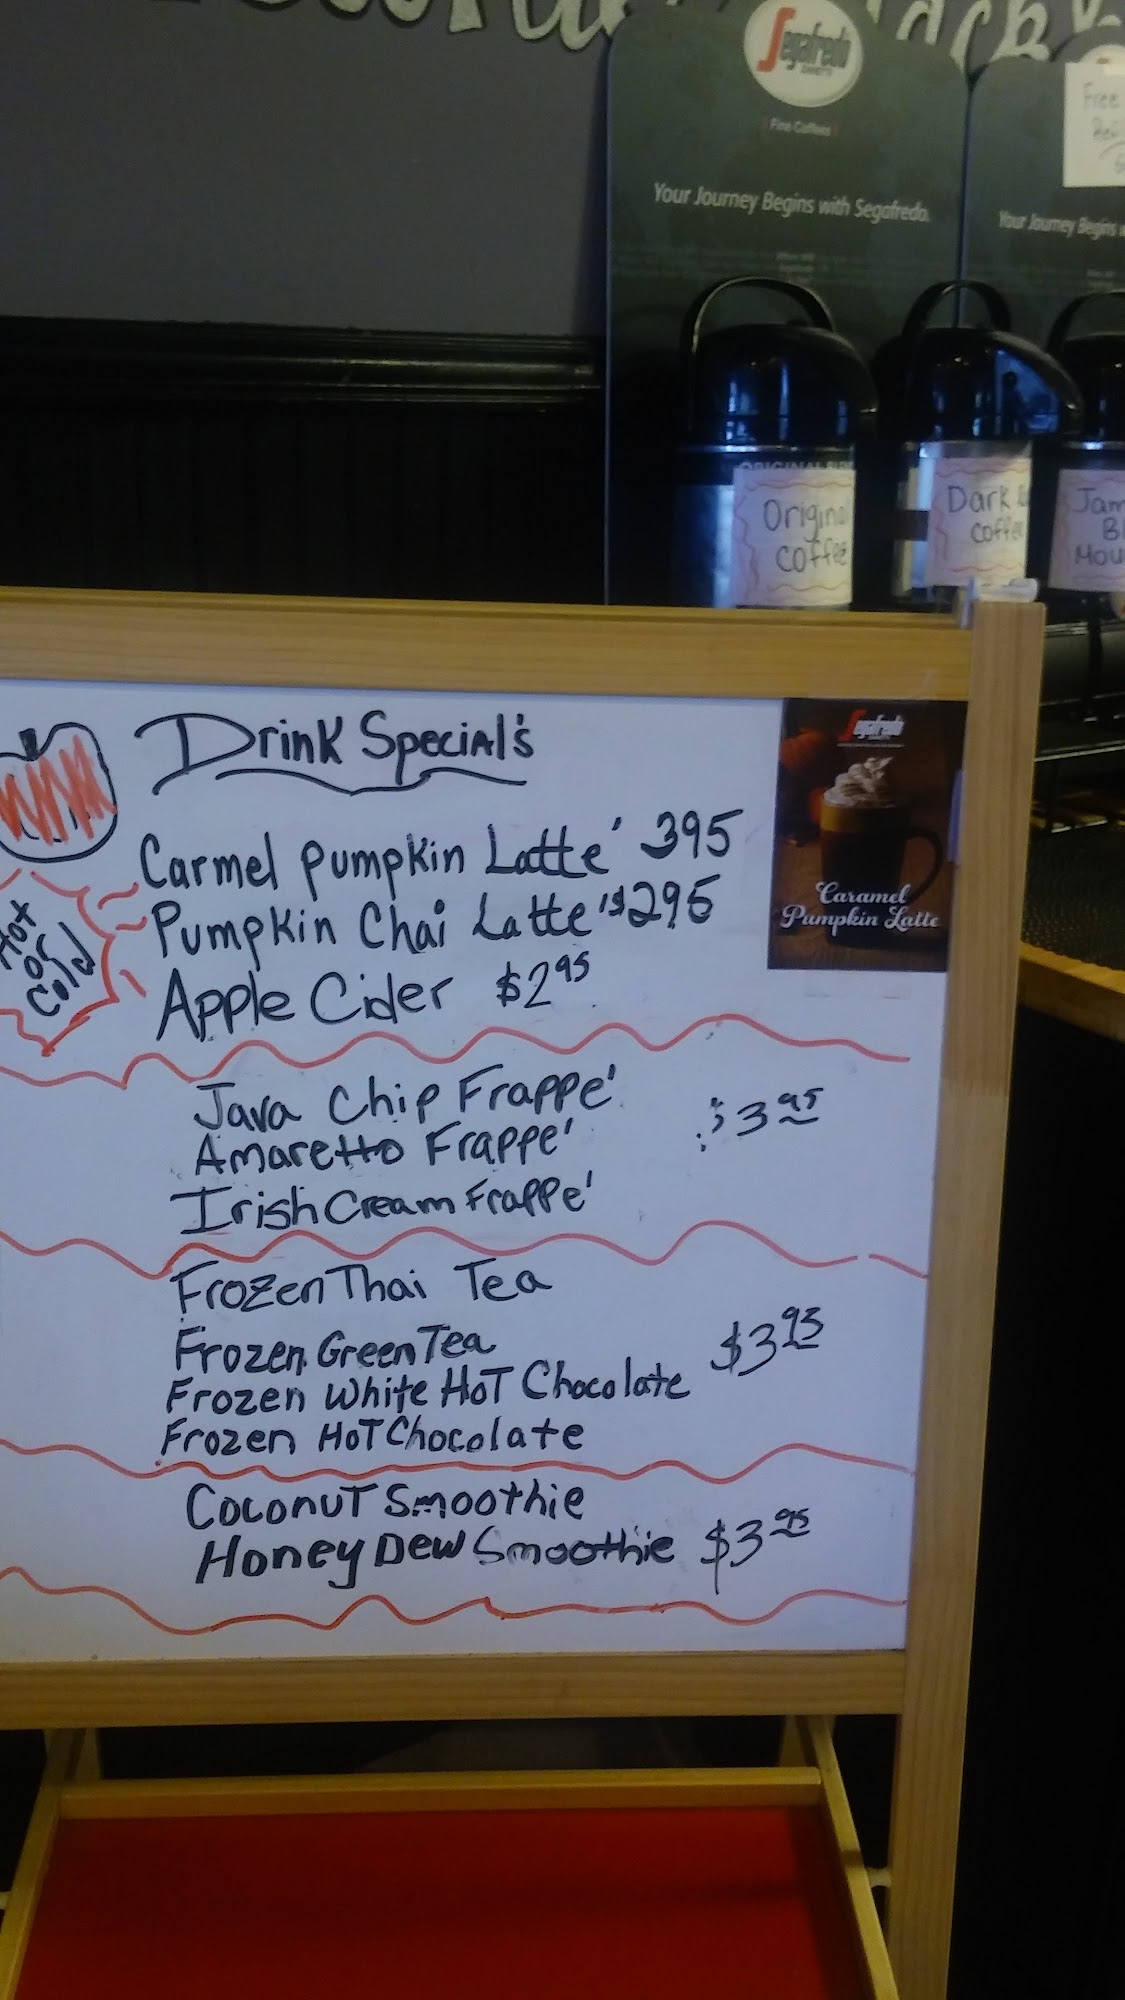 Segafredo
ZANETTI
Fine Coffees
Your Journey Begins with Segafredo.
Your Journey Begins
Free
ORIGINAL
Original
Coffee
Dark
Coffee
Jam
Bl
Mou
Drink Special's
Carmel Pumpkin Latte' 395
Pumpkin Chai Latte' $295
Apple Cider $2.95
Hot
or
Cold
Segafredo
Caramel
Pumpkin Latte
Java Chip Frappe'
Amaretto Frappe' $3 95
Irish Cream Frappe'
Frozen Thai Tea
Frozen Green Tea $3 95
Frozen White Hot Chocolate
Frozen Hot Chocolate
Coconut Smoothie
Honey Dew Smoothie $3 95